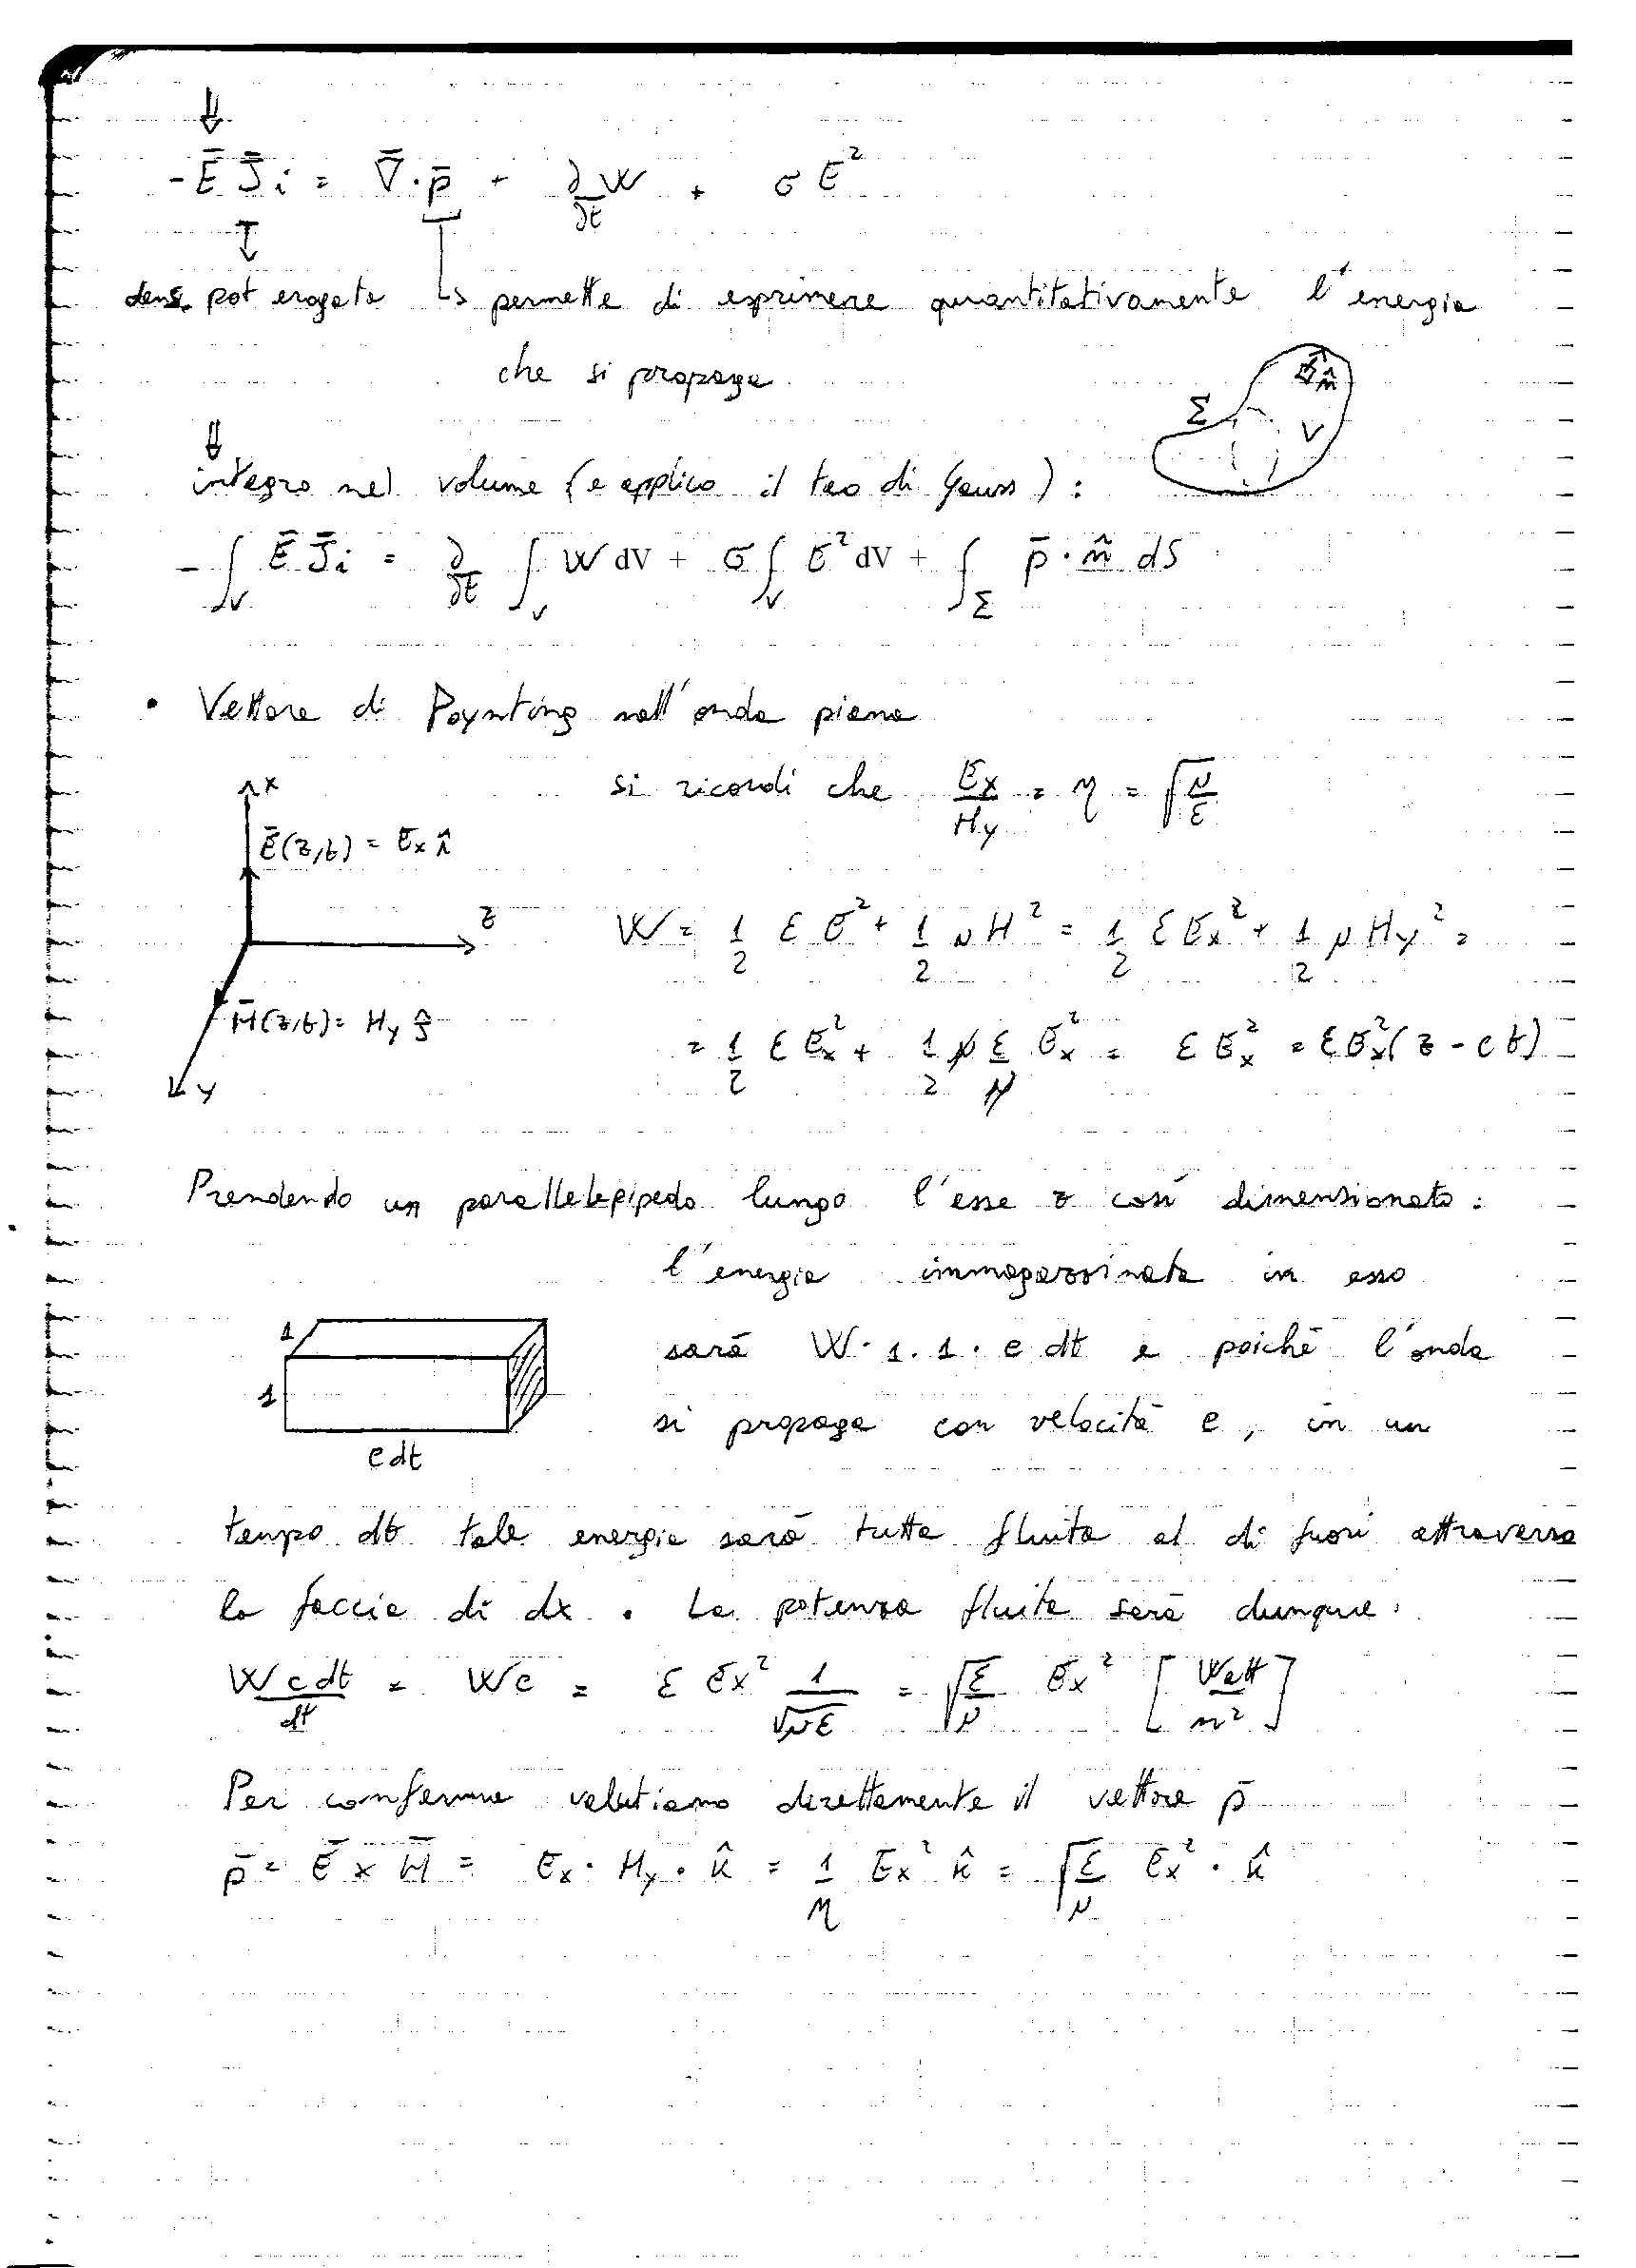 ⇓
-Ē J̄i = ∇̄·p̄ + ∂W/∂t + σE²
dens. pot erogata ↳ permette di esprimere quantitativamente l'energia
che si propaga
Σ V n̂
⇓
integro nel volume (e applico il teo di Gauss):
-∫_V Ē J̄i = ∂/∂t ∫_V W dV + σ∫_V E² dV + ∫_Σ p̄·n̂ dS
• Vettore di Poynting nell'onda piana
si ricordi che Ex/Hy = η = √(μ/ε)
x
Ē(z,t) = Ex î
z
W = 1/2 ε E² + 1/2 μ H² = 1/2 ε Ex² + 1/2 μ Hy² =
H̄(z,t) = Hy ĵ
= 1/2 ε Ex² + 1/2 μ ε/μ Ex² = ε Ex² = ε Ex²(z - ct)
y
Prendendo un parallelepipedo lungo l'asse z così dimensionato:
l'energia immagazzinata in esso
1
sarà W·1·1·c dt e poiché l'onda
1
si propaga con velocità c, in un
c dt
tempo dt tale energia sarà tutta fluita al di fuori attraverso
la faccia di dx. La potenza fluita sarà dunque:
W c dt/dt = Wc = ε Ex² 1/√(με) = √(ε/μ) Ex² [Watt/m²]
Per conferma valutiamo direttamente il vettore p̄
p̄ = Ē x H̄ = Ex·Hy·k̂ = 1/η Ex² k̂ = √(ε/μ) Ex²·k̂